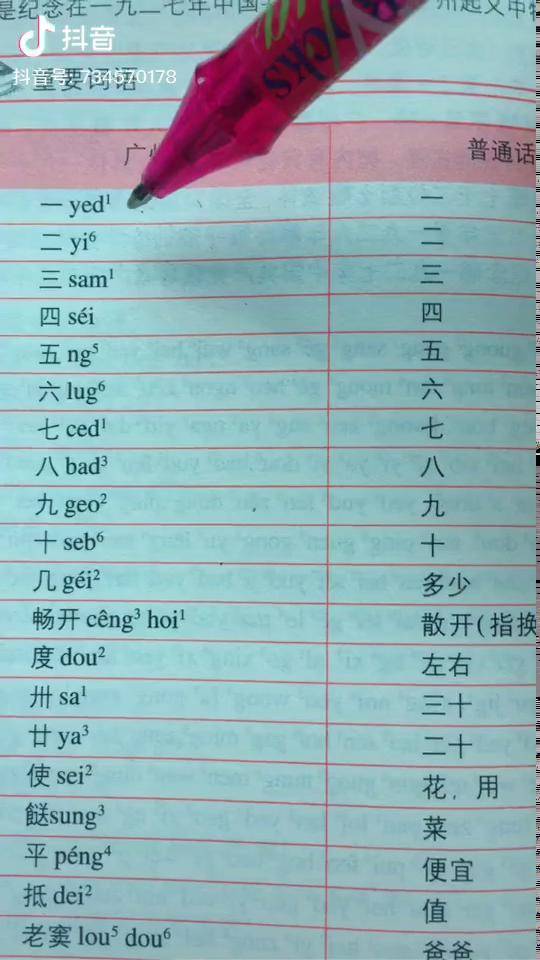 是纪念在一九二七年中国
州起义中
抖音
抖音号: 734570178
重要词语
广
普通话
一 yed¹ 一
二 yi⁶ 二
三 sam¹ 三
四 séi 四
五 ng⁵ 五
六 lug⁶ 六
七 ced¹ 七
八 bad³ 八
九 geo² 九
十 seb⁶ 十
几 géi² 多少
畅开 cêng³ hoi¹ 散开(指换
度 dou² 左右
卅 sa¹ 三十
廿 ya³ 二十
使 sei² 花，用
餸sung³ 菜
平 péng⁴ 便宜
抵 dei² 值
老窦 lou⁵ dou⁶ 爸爸